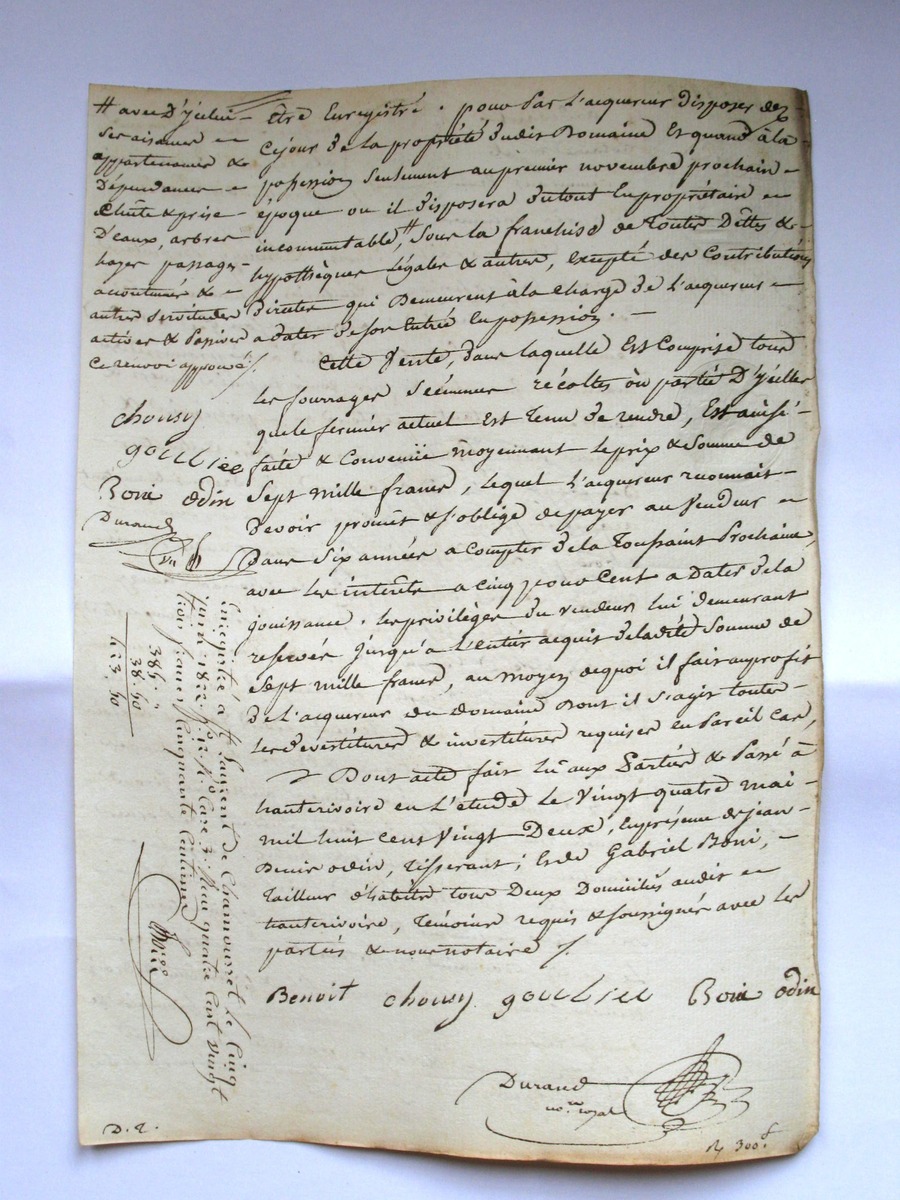 # avec D'jcelui
Ses aisances
appartenances &
Dépendances
chûte & prise
D'eaux, arbres
hayes passages
acoutumés &
autres Servitudes
actives & Passives
Ce renvoi approuvé
chousy
goullier
Boni odin
Durand
Être Enregistré. pour par L'acquereur Disposer dez
Cejour de la propriété dudit Domaine Et quand à la
possession Seulement au premier novembre prochain
époque ou il disposera dutout En propriétaire
incommutable, # Sous la franchise de toutes Dettes &
hypothèques Légales & autres, Excepté des Contributions
Directes qui Demeurent à la charge de L'acquereur
a dater de son Entrée En possession.
Cette Vente, dans laquelle Est Comprise tous
les fourrages Seémences récoltes ou partie D'jcelles
que le fermier actuel Est Tenu de rendre, Est ainsi
faite & Convenüe moyennant le prix & Somme de
Sept mille francs, lequel L'acquereur reconnait
devoir promet & s'oblige de payer au Vendeur
Dans Six années a Compter de la Toussaint Prochaine,
avec les intérêts a cinq pour Cent a Dater de la
jouissance. les privilèges du Vendeur lui demeurant
reservés jusqu'a L'entier acquit de ladite Somme de
Sept mille francs, au moyen de quoi il fait au profit
de L'acquereur du domaine Dont il s'agit toutes
les devestitures & investitures requises en Pareil Cas,
Dont acte fait lu aux Parties & Passé à
hauterivoire en L'étude le Vingt quatre mai
mil huit Cent Vingt Deux, En présence de jean
Denis odin, tisserant; Et de Gabriel Boni,
Tailleur d'habits tous Deux Domiciliés audit
hauterivoire, témoins requis & soussignés avec les
parties & nous notaire
Benoit chousy goullier Boni odin
Durand
no.re royal
Enregistré à St Laurent de Chamousset le Cinq
juin 1822 f.o Case 3. Reçu quatre Cent Vingt
trois francs Cinquante Centimes
385.
38. 50
423. 50
D. 2.
300 f